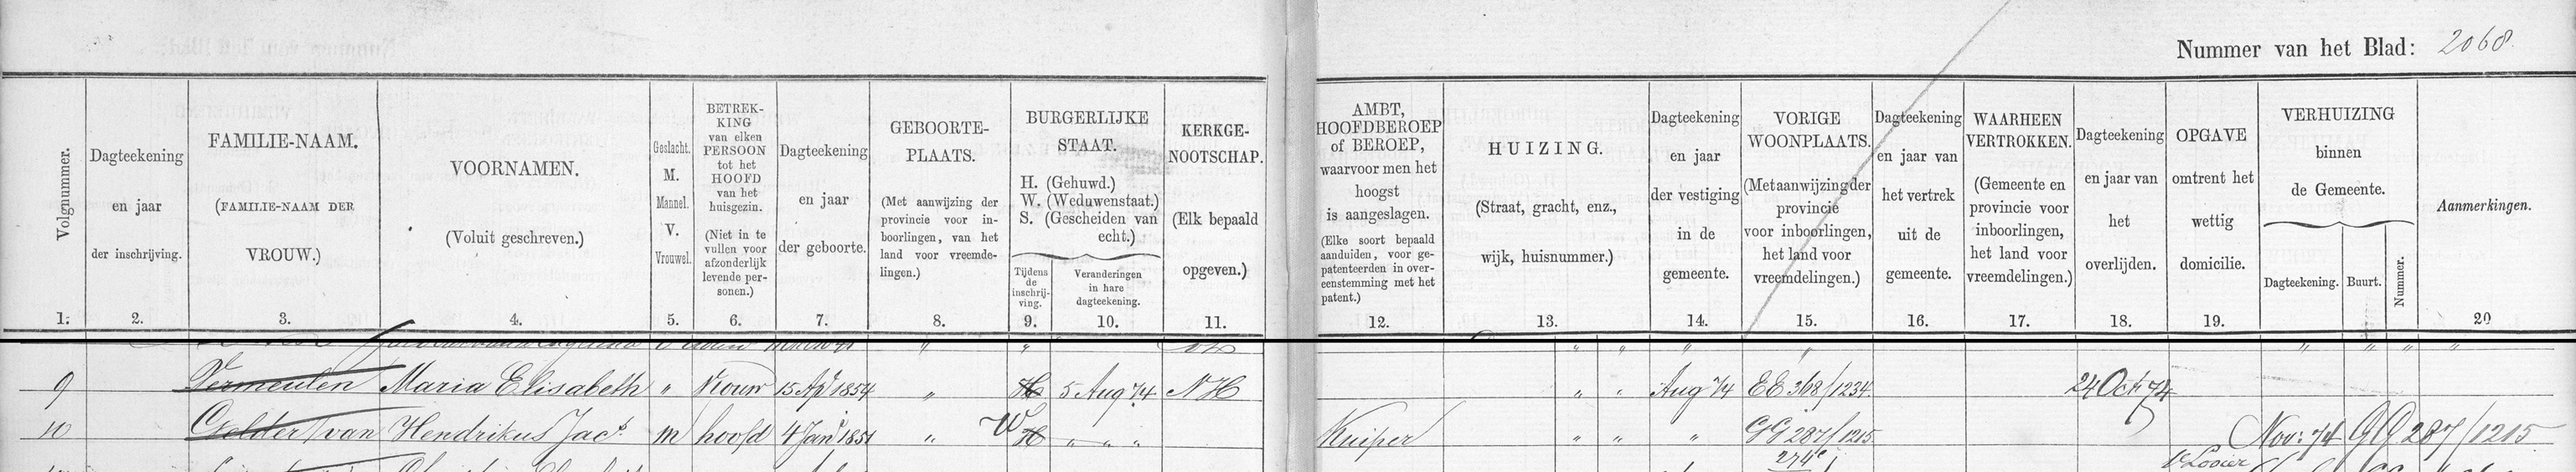 Nummer van het Blad: 2068.
Volgnummer.
1.
Dagteekening
en jaar
der inschrijving.
2.
FAMILIE-NAAM.
(FAMILIE-NAAM DER
VROUW.)
3.
VOORNAMEN.
(Voluit geschreven.)
4.
Geslacht.
M.
Mannel.
V.
Vrouwel.
5.
BETREK-
KING
van elken
PERSOON
tot het
HOOFD
van het
huisgezin.
(Niet in te
vullen voor
afzonderlijk
levende per-
sonen.)
6.
Dagteekening
en jaar
der geboorte.
7.
GEBOORTE-
PLAATS.
(Met aanwijzing der
provincie voor in-
boorlingen, van het
land voor vreemde-
lingen.)
8.
BURGERLIJKE
STAAT.
H. (Gehuwd.)
W. (Weduwenstaat.)
S. (Gescheiden van
echt.)
Tijdens
de
inschrij-
ving.
9.
Veranderingen
in hare
dagteekening.
10.
KERKGE-
NOOTSCHAP.
(Elk bepaald
opgeven.)
11.
AMBT,
HOOFDBEROEP
of BEROEP,
waarvoor men het
hoogst
is aangeslagen.
(Elke soort bepaald
aanduiden, voor ge-
patenteerden in over-
eenstemming met het
patent.)
12.
HUIZING.
(Straat, gracht, enz.,
wijk, huisnummer.)
13.
Dagteekening
en jaar
der vestiging
in de
gemeente.
14.
VORIGE
WOONPLAATS.
(Met aanwijzing der
provincie
voor inboorlingen,
het land voor
vreemdelingen.)
15.
Dagteekening
en jaar van
het vertrek
uit de
gemeente.
16.
WAARHEEN
VERTROKKEN.
(Gemeente en
provincie voor
inboorlingen,
het land voor
vreemdelingen.)
17.
Dagteekening
en jaar van
het
overlijden.
18.
OPGAVE
omtrent het
wettig
domicilie.
19.
VERHUIZING
binnen
de Gemeente.
Dagteekening. Buurt. Nummer.
Aanmerkingen.
20
9 Vermeulen Maria Elisabeth " Vrouw 15 Apl 1854 " H 5 Aug 74 NH " " Aug 74 EE 368/1234 24 Oct 74
10 Gelder van Hendrikus Jacs. m hoofd 4 Jan 1851 " W H " " " Kuiper " " " GG 287/1215 Nov: 74 GG 287/1215